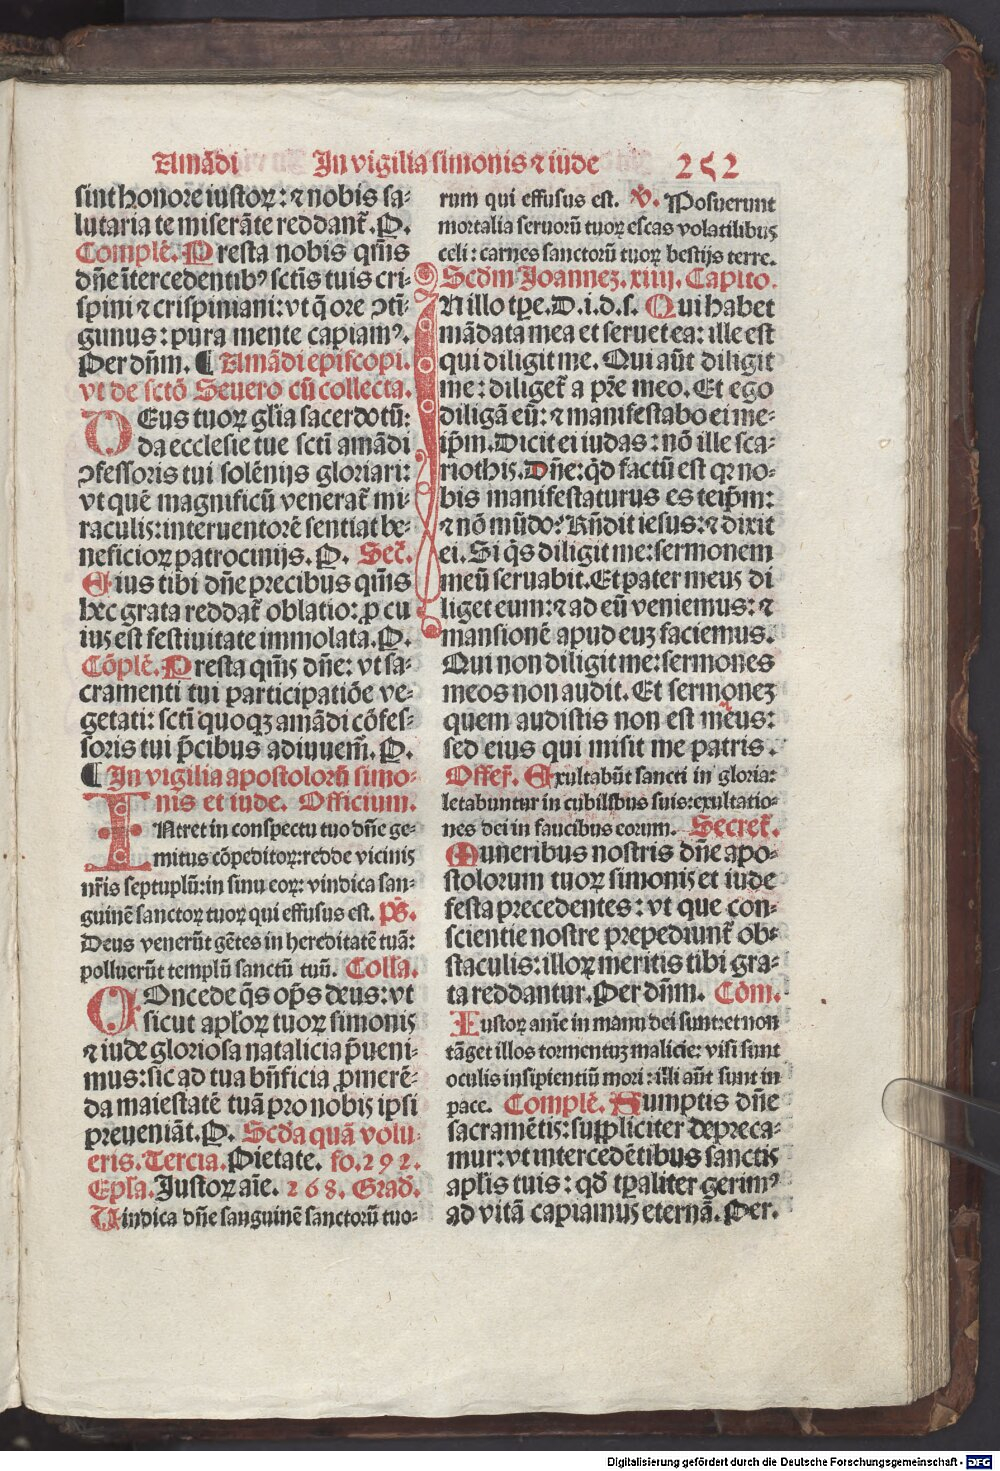 Amādi In vigilia simonis ⁊ iude 252
sint honore iustoꝝ: ⁊ nobis sa-
lutaria te miserāte reddant̄. P.
Complē. Presta nobis qm̄s
dn̄e ītercedentibꝰ sctīs tuis cri-
spini ⁊ crispiniani: vt q̄ ore ꝯtī-
gimus: pura mente capiamꝰ.
Per dn̄m. ¶ Amādi episcopi.
vt de sctō Seuero cū collecta.
DEus tuoꝝ glīa sacerdotū:
da ecclesie tue scti amādi
ꝯfessoris tui solēnijs gloriari:
vt quē magnificū venerat̄ mi
raculis: interuentorē sentiat be-
neficioꝝ patrocinijs. P. Secr̄.
Eius tibi dn̄e precibus qm̄s
hec grata reddat̄ oblatio: ꝓ cu
ius est festiuitate immolata. P.
Cōplē. Presta qm̄s dn̄e: vt sa-
cramenti tui participatiōe ve-
getati: sctī quoqꝫ amādi cōfes-
soris tui p̄cibus adiuuem̄. P.
¶ In vigilia apostolorū simo-
nis et iude. Officium.
INtret in conspectu tuo dn̄e ge-
mitus cōpeditoꝝ: redde vicinis
nr̄is septuplū: in sinu eoꝝ: vindica san-
guinē sanctoꝝ tuoꝝ qui effusus est. ps̄.
Deus venerūt gētes in hereditatē tuā:
polluerūt templū sanctū tuū. Colla.
COncede q̄s op̄s deus: vt
sicut apl'oꝝ tuoꝝ simonis
⁊ iude gloriosa natalicia p̄ueni-
mus: sic ad tua bn̄ficia ꝓmerē-
da maiestatē tuā pro nobis ipsi
preueniāt. P. Scd̄a quā volu-
eris. Tercia. Pietate. fo. 292.
Epl̄a. Iustoꝝ aīe. 268. Grad̄.
Vindica dn̄e sanguinē sanctorū tuo-
rum qui effusus est. v̄. Posuerunt
mortalia seruorū tuoꝝ escas volatilibus
celi: carnes sanctorū tuoꝝ bestijs terre.
Scd̄m Joannez. xiiij. Capito.
IN illo tp̄e. D. i. d. s. Qui habet
mādata mea et seruet ea: ille est
qui diligit me. Qui aūt diligit
me: diliget̄ a pr̄e meo. Et ego
diligā eū: ⁊ manifestabo ei me-
ip̄m. Dicit ei iudas: nō ille sca-
riothis. Dn̄e: qd̄ factū est qꝛ no-
bis manifestaturus es teip̄m:
⁊ nō mūdo? Rn̄dit iesus: ⁊ dixit
ei. Si q̄s diligit me: sermonem
meū seruabit. Et pater meus di
liget eum: ⁊ ad eū veniemus: ⁊
mansionē apud euꝫ faciemus.
Qui non diligit me: sermones
meos non audit. Et sermonez
quem audistis non est meus:
sed eius qui misit me patris.
Offer̄. Exultabūt sancti in gloria:
letabuntur in cubilibus suis: exultatio-
nes dei in faucibus eorum. Secret̄.
Muneribus nostris dn̄e apo-
stolorum tuoꝝ simonis et iude
festa precedentes: vt que con-
scientie nostre prepediunt̄ ob-
staculis: illoꝝ meritis tibi gra-
ta reddantur. Per dn̄m. Cōm.
Iustoꝝ anīe in manu dei sunt: et non
tāget illos tormentuꝫ malicie: visi sunt
oculis insipientiū mori: illi aūt sunt in
pace. Complē. Sumptis dn̄e
sacramētis: suppliciter depreca-
mur: vt intercedētibus sanctis
apl̄is tuis: qd̄ tp̄aliter gerimꝰ
ad vitā capiamus eternā. Per.
Digitalisierung gefördert durch die Deutsche Forschungsgemeinschaft - DFG